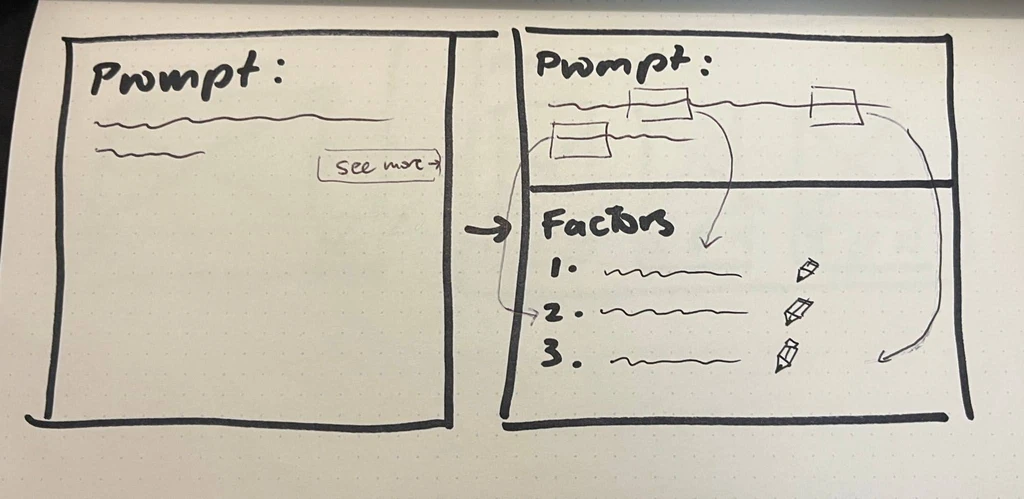 Prompt:
see more →
Prompt:
Factors
1.
2.
3.